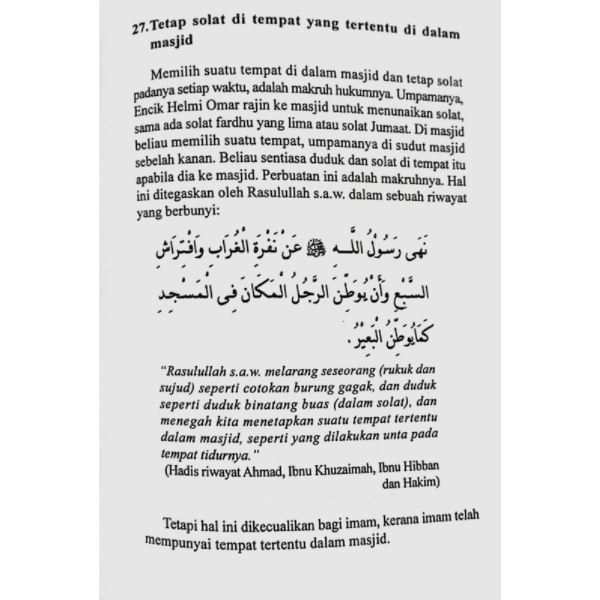 27.Tetap solat di tempat yang tertentu di dalam
masjid
Memilih suatu tempat di dalam masjid dan tetap solat
padanya setiap waktu, adalah makruh hukumnya. Umpamanya,
Encik Helmi Omar rajin ke masjid untuk menunaikan solat,
sama ada solat fardhu yang lima atau solat Jumaat. Di masjid
beliau memilih suatu tempat, umpamanya di sudut masjid
sebelah kanan. Beliau sentiasa duduk dan solat di tempat itu
apabila dia ke masjid. Perbuatan ini adalah makruhnya. Hal
ini ditegaskan oleh Rasulullah s.a.w. dalam sebuah riwayat
yang berbunyi:
نَهَى رَسُوْلُ اللَّهِ ﷺ عَنْ نَفْرَةِ الْغُرَابِ وَافْتِرَاشِ
السَّبُعِ وَأَنْ يُوَطِّنَ الرَّجُلُ الْمَكَانَ فِى الْمَسْجِدِ
كَمَايُوَطِّنُ الْبَعِيْرُ.
"Rasulullah s.a.w. melarang seseorang (rukuk dan
sujud) seperti cotokan burung gagak, dan duduk
seperti duduk binatang buas (dalam solat), dan
menegah kita menetapkan suatu tempat tertentu
dalam masjid, seperti yang dilakukan unta pada
tempat tidurnya."
(Hadis riwayat Ahmad, Ibnu Khuzaimah, Ibnu Hibban
dan Hakim)
Tetapi hal ini dikecualikan bagi imam, kerana imam telah
mempunyai tempat tertentu dalam masjid.